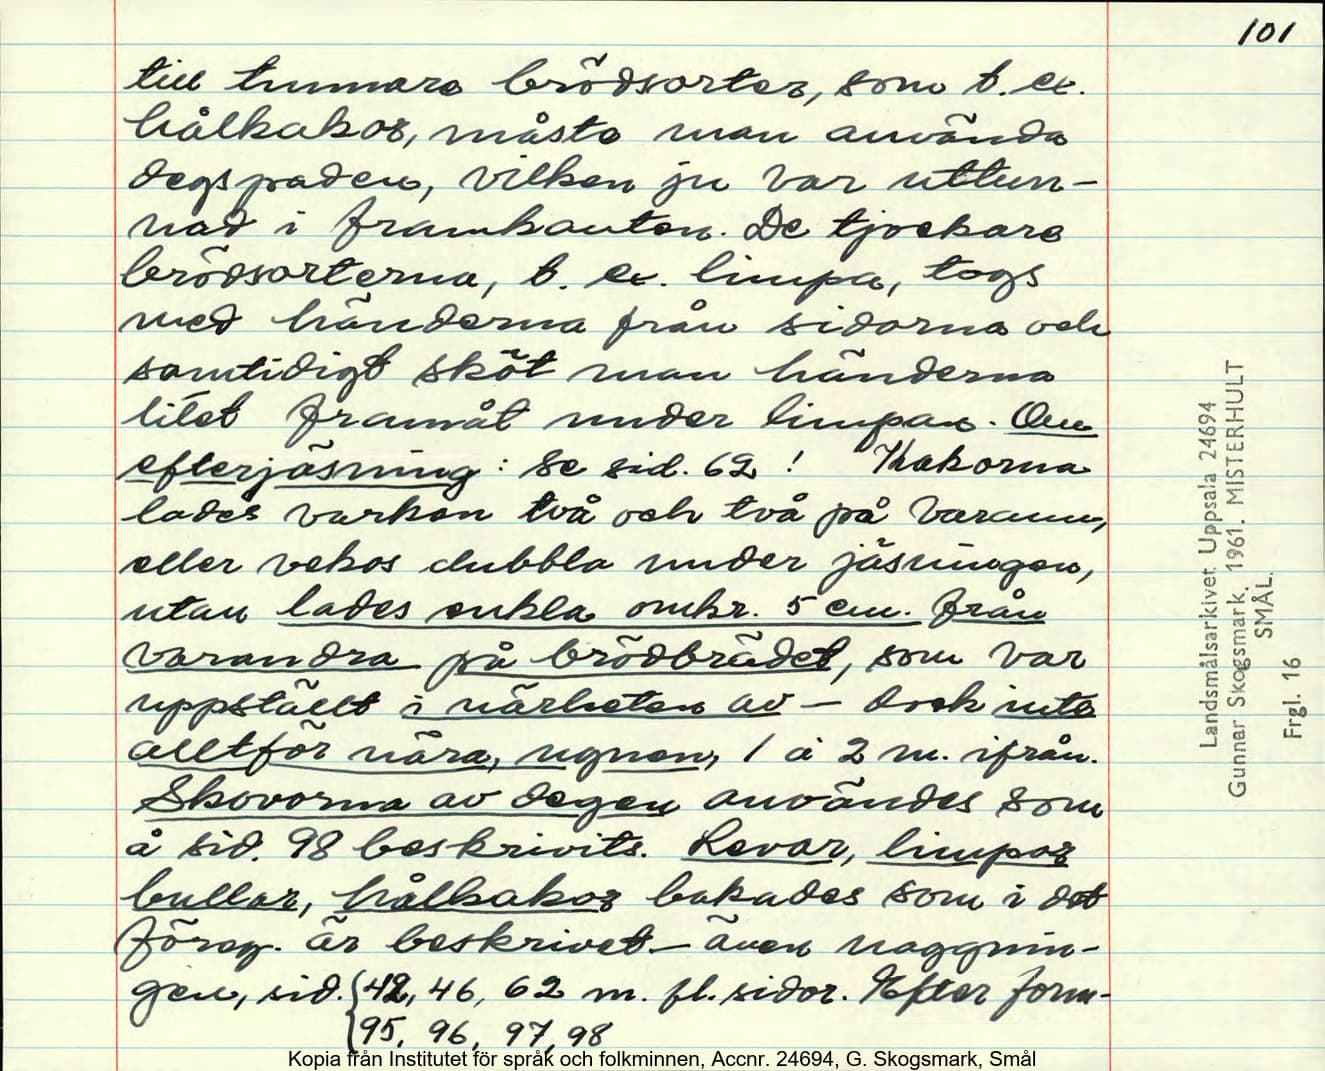 101
till tunnare brödsorter, som t. ex.
hålkakor, måste man använda
degspaden, vilken ju var uttun-
nad i framkanten. De tjockare
brödsorterna, t. ex. limpa, togs
med händerna från sidorna och
samtidigt sköt man händerna
litet framåt under limpan. Om
efterjäsning: se sid. 62! Kakorna
lades varken två och två på varann,
eller vekos dubbla under jäsningen,
utan lades enkla omkr. 5 cm. från
varandra på brödbrädet, som var
uppställt i närheten av – dock inte
alltför nära, ugnen, 1 à 2 m. ifrån.
Skovorna av degen användes som
å sid. 98 beskrivits. Levar, limpor
bullar, hålkakor bakades som i det
föreg. är beskrivet – även naggnin-
gen, sid. {42, 46, 62 m. fl. sidor. Efter form-
95, 96, 97, 98
Landsmålsarkivet Uppsala 24694
Gunnar Skogsmark, 1961. MISTERHULT
SMÅL.
Frgl. 16
Kopia från Institutet för språk och folkminnen, Accnr. 24694, G. Skogsmark, Smål